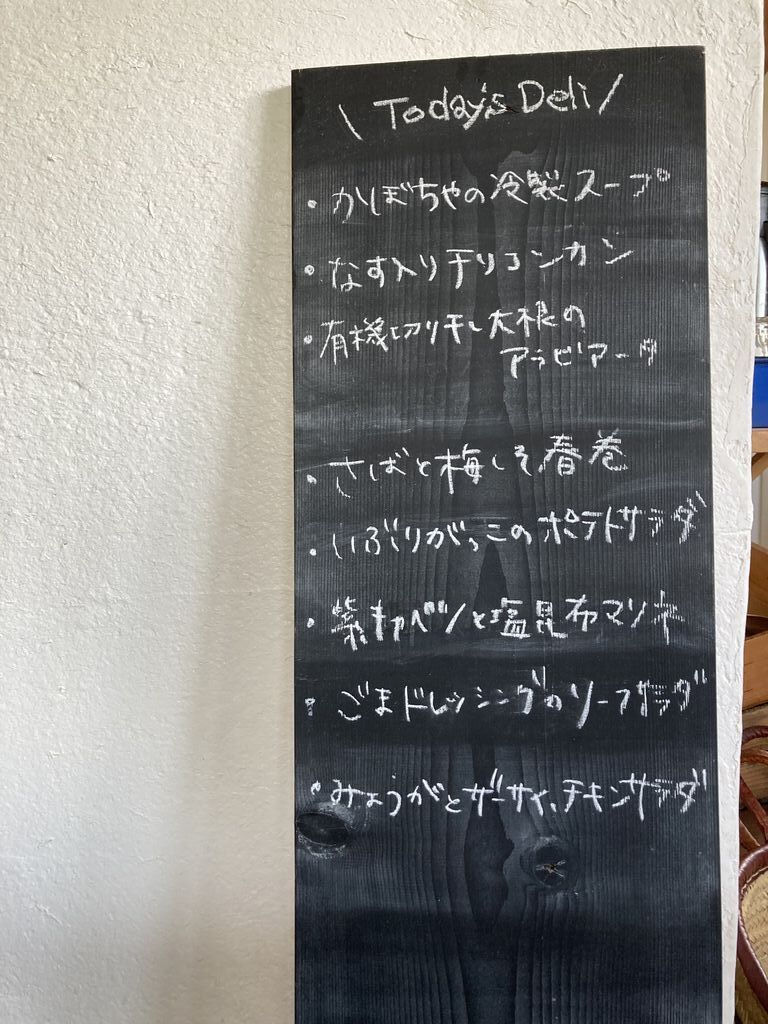 \ Today's Deli /
・かぼちゃの冷製スープ
・なす入りチリコンカン
・有機切り干し大根の
アラビアータ
・さばと梅しそ春巻
・いぶりがっこのポテトサラダ
・紫キャベツと塩昆布マリネ
・ごまドレッシングのリーフサラダ
・みょうがとザーサイ、チキンサラダ